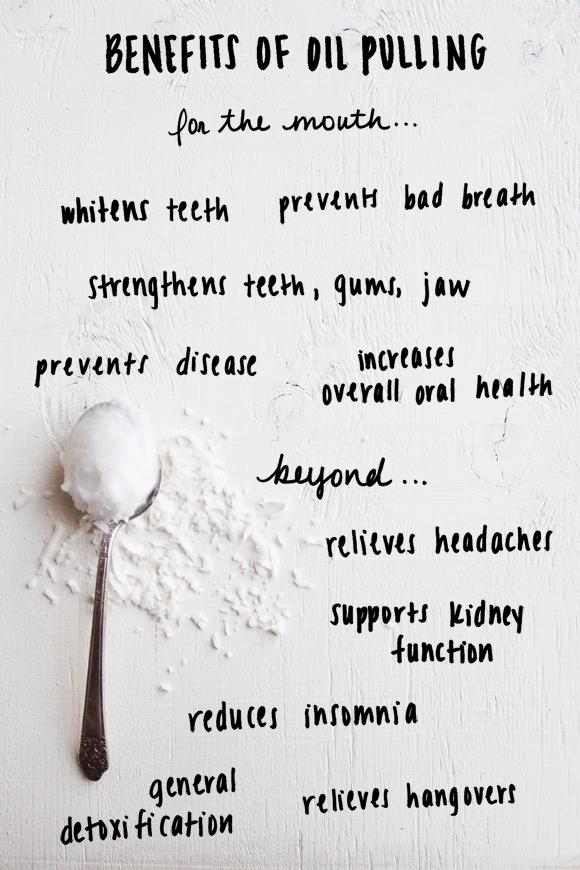 BENEFITS OF OIL PULLING
for the mouth...
whitens teeth
prevents bad breath
strengthens teeth, gums, jaw
prevents disease
increases
overall oral health
beyond...
relieves headaches
supports kidney
function
reduces insomnia
general
detoxification
relieves hangovers